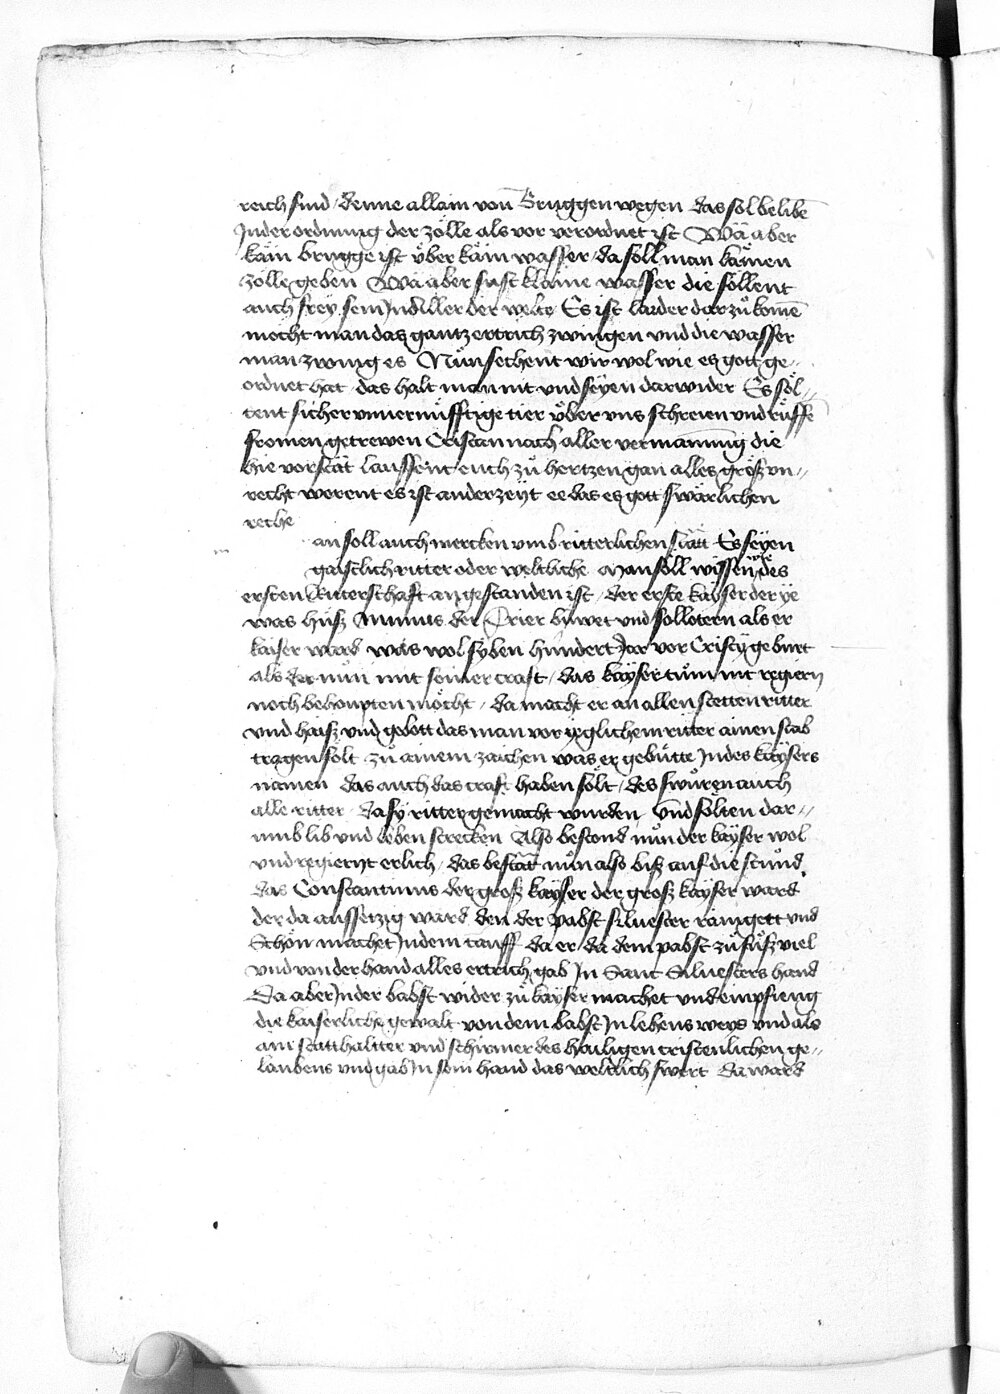 reich sind / denne allain von Bruggen wegen das sol belibē
Jn der ordnung der zölle als vor verordnet ist Wä aber
käin brugge ist über käin wasser / da soll man känen
zolle geben Wä aber sust klaine wasser die söllent
auch frey sein Jnd aller der welte Es ist laider dar zů komē
möcht man das gantz ertrich zwingen vnd die wasser
man zwing es Nůn sechent wir wol wie es gott ge-
ordnet hat das halt man nit vnd seyen dar wider Es söl-
tent sicher vnuernüfftige tier über vns schreien vnd rüffē
fromen getrewen Cristan nach aller vermanung die
hie vor stät laussent euch zů hertzen gan alles groß vn-
recht werent es ist an der zeyt ee das es gott swärlichen
reche
an soll auch mercken vmb ritterlichen stätt Es seyen
gaistlich ritter oder weltliche Man soll wissen des
ersten Ritterschaft angestanden ist / der erste kayser der ye
was hieß Ninnus der bůwet vnd als er
kaiser ward was wol syben hundert Jar vor Cristy geburt
als der nun mit seiner craft / das kaysertům nit regiern
noch behoupten möcht / da macht er an allen stetten ritter
vnd haiß vnd gebott das man vor yeglichem ritter ainen stab
tragen solt zů ainem zaichen was er gebütte Jn des kaysers
namen das auch das craft haben sölt / des swůren auch
alle ritter da sy ritter gemacht wurden vnd sölten dar-
umb lib vnd leben strecken Also bestond nůn der kayser wol
vnd regieryt erlich / das bestät nůn also biß auf die stund
das Constantinus der groß kayser der groß kayser ward
der da aussetzig ward den der pabst siluester rainigett vnd
Schön machet Jn dem tauff da er da dem pabst zů fůß viel
vnd von der hand alles ertrich gab Jn Sant Siluesters hand
Da aber Jn der babst wider zů kayser machet vnd empfieng
die kaiserliche gewalt von dem babst Jn lehens weys vnd als
ain statthaltter vnd schirmer des hailigen cristenlichen ge-
laubens vnd gab Jn sein hand das weltlich swert Da ward